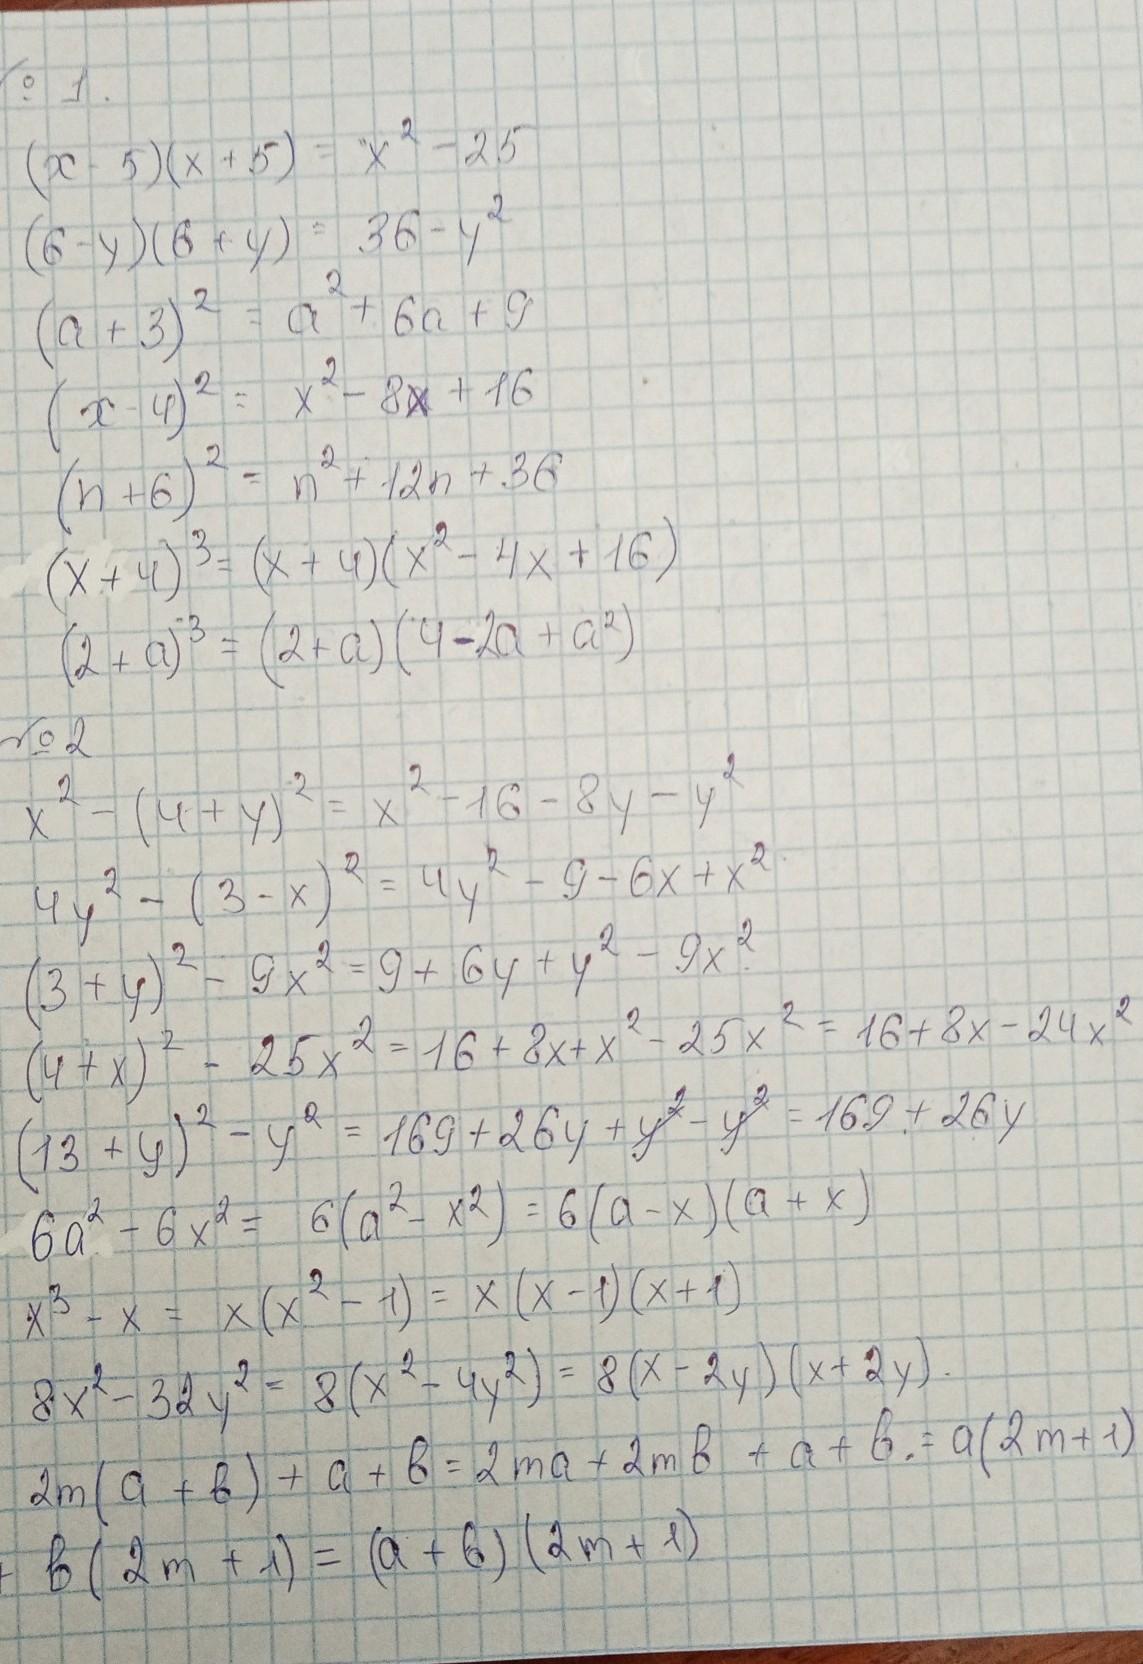 № 1.
(x - 5)(x + 5) = x² - 25
(6 - y)(6 + y) = 36 - y²
(a + 3)² = a² + 6a + 9
(x - 4)² = x² - 8x + 16
(n + 6)² = n² + 12n + 36
(x + 4)³ = (x + 4)(x² - 4x + 16)
(2 + a)³ = (2 + a)(4 - 2a + a²)
№ 2
x² - (4 + y)² = x² - 16 - 8y - y²
4y² - (3 - x)² = 4y² - 9 - 6x + x²
(3 + y)² - 9x² = 9 + 6y + y² - 9x²
(4 + x)² - 25x² = 16 + 8x + x² - 25x² = 16 + 8x - 24x²
(13 + y)² - y² = 169 + 26y + y² - y² = 169 + 26y
6a² - 6x² = 6(a² - x²) = 6(a - x)(a + x)
x³ - x = x(x² - 1) = x(x - 1)(x + 1)
8x² - 32y² = 8(x² - 4y²) = 8(x - 2y)(x + 2y).
2m(a + b) + a + b = 2ma + 2mb + a + b. = a(2m + 1)
+ b(2m + 1) = (a + b)(2m + 1)